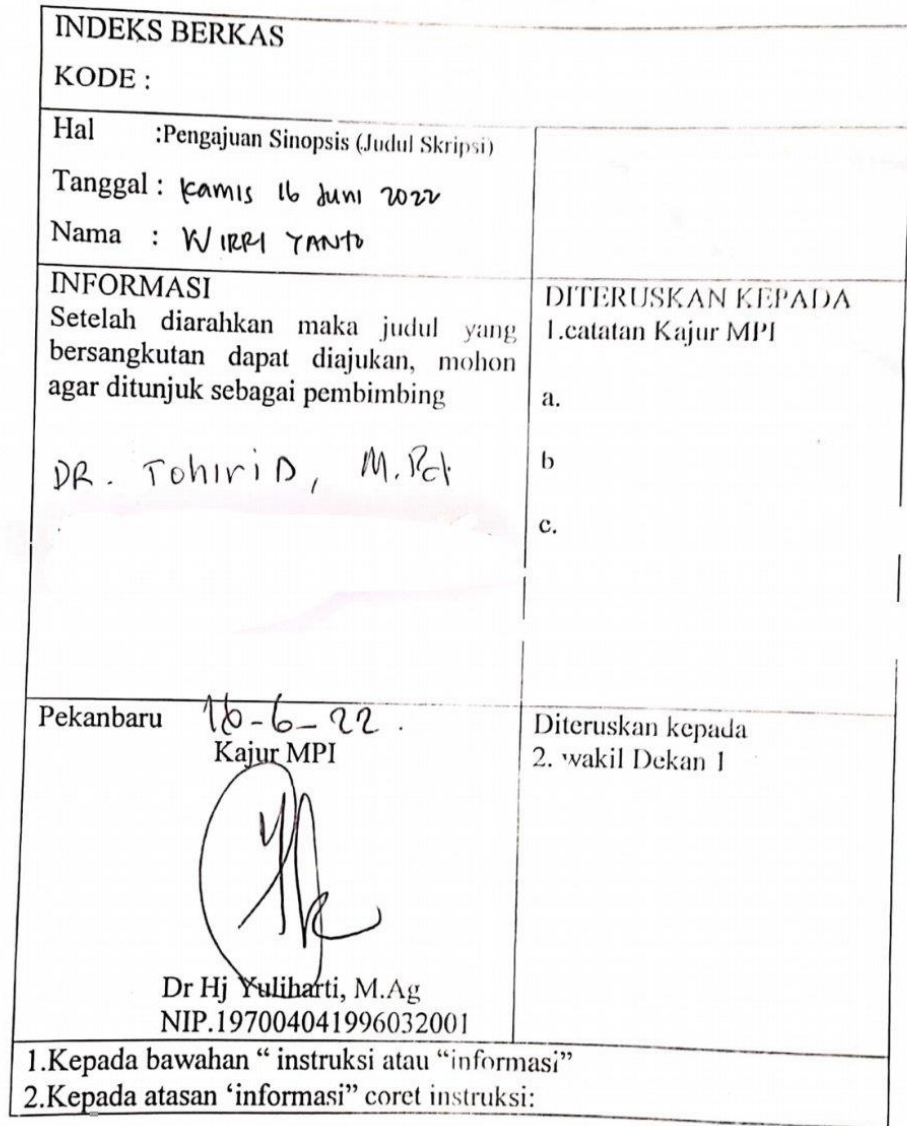 INDEKS BERKAS
KODE :
Hal :Pengajuan Sinopsis (Judul Skripsi)
Tanggal : Kamis 16 Juni 2022
Nama : WIRRI YANTO
INFORMASI
Setelah diarahkan maka judul yang
bersangkutan dapat diajukan, mohon
agar ditunjuk sebagai pembimbing
DR. Tohirin, M.Pd
DITERUSKAN KEPADA
1.catatan Kajur MPI
a.
b
c.
Pekanbaru 16-6-22.
Kajur MPI
Dr Hj Yuliharti, M.Ag
NIP.197004041996032001
Diteruskan kepada
2. wakil Dekan 1
1.Kepada bawahan “ instruksi atau “informasi”
2.Kepada atasan ‘informasi” coret instruksi: